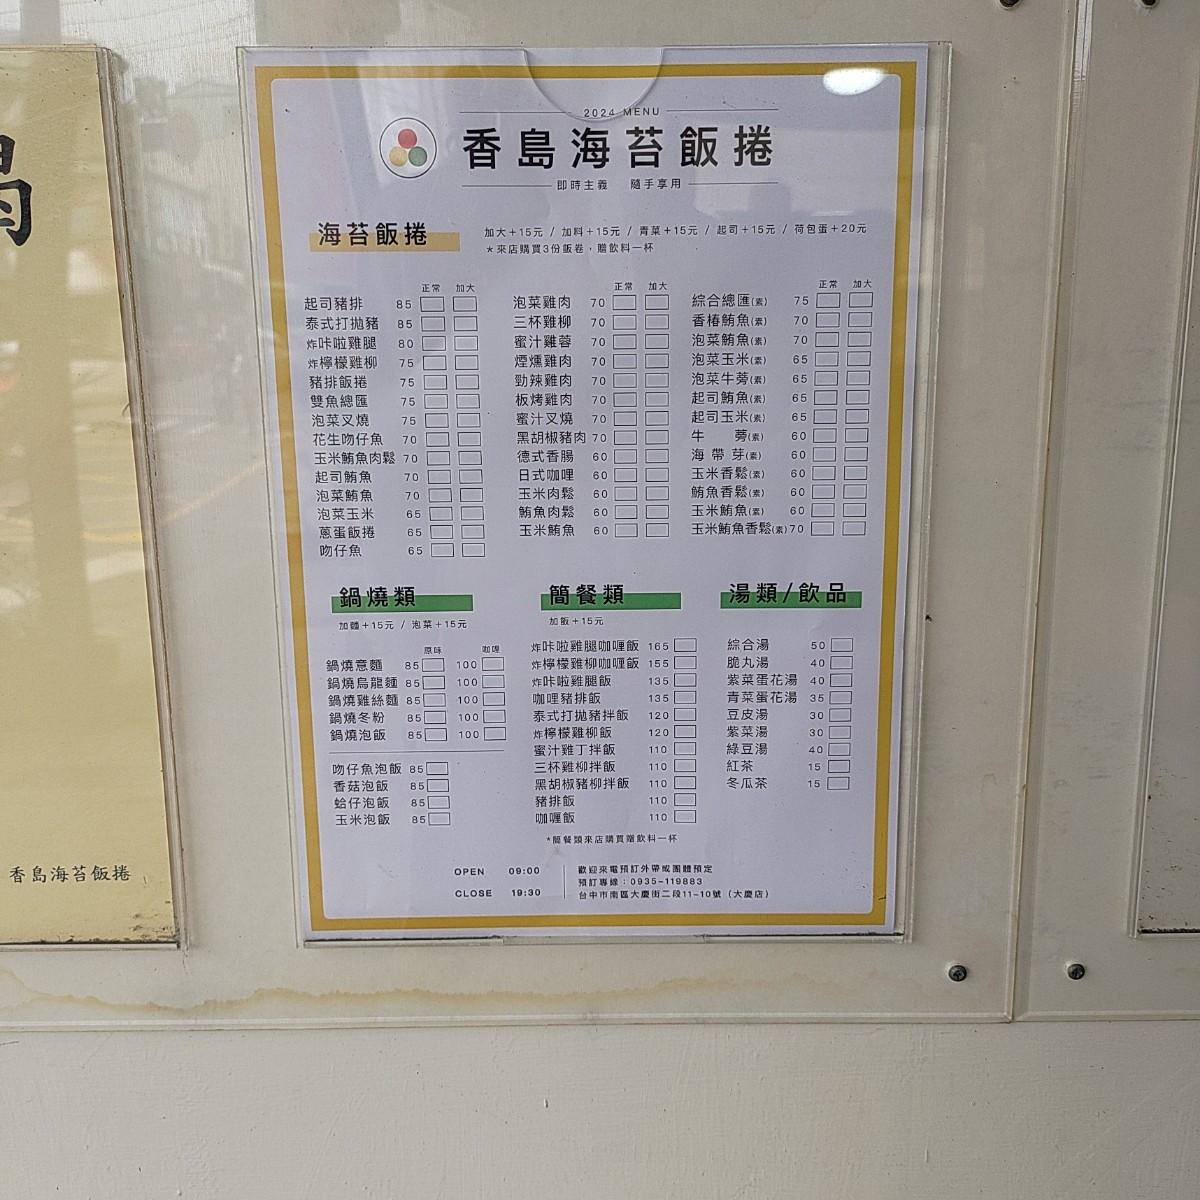 2024 MENU
香島海苔飯捲
即時主義 隨手享用
海苔飯捲
加大+15元 / 加料+15元 / 青菜+15元 / 起司+15元 / 荷包蛋+20元
*來店購買3份飯卷,贈飲料一杯
正常 加大
起司豬排 85
泰式打拋豬 85
炸咔啦雞腿 80
炸檸檬雞柳 75
豬排飯捲 75
雙魚總匯 75
泡菜叉燒 75
花生吻仔魚 70
玉米鮪魚肉鬆 70
起司鮪魚 70
泡菜鮪魚 70
泡菜玉米 65
蔥蛋飯捲 65
吻仔魚 65
正常 加大
泡菜雞肉 70
三杯雞柳 70
蜜汁雞蓉 70
煙燻雞肉 70
勁辣雞肉 70
板烤雞肉 70
蜜汁叉燒 70
黑胡椒豬肉 70
德式香腸 60
日式咖哩 60
玉米肉鬆 60
鮪魚肉鬆 60
玉米鮪魚 60
正常 加大
綜合總匯(素) 75
香椿鮪魚(素) 70
泡菜鮪魚(素) 70
泡菜玉米(素) 65
泡菜牛蒡(素) 65
起司鮪魚(素) 65
起司玉米(素) 65
牛 蒡(素) 60
海帶芽(素) 60
玉米香鬆(素) 60
鮪魚香鬆(素) 60
玉米鮪魚(素) 60
玉米鮪魚香鬆(素) 70
鍋燒類
加麵+15元 / 泡菜+15元
原味 咖哩
鍋燒意麵 85 100
鍋燒烏龍麵 85 100
鍋燒雞絲麵 85 100
鍋燒冬粉 85 100
鍋燒泡飯 85 100
吻仔魚泡飯 85
香菇泡飯 85
蛤仔泡飯 85
玉米泡飯 85
簡餐類
加飯+15元
炸咔啦雞腿咖哩飯 165
炸檸檬雞柳咖哩飯 155
炸咔啦雞腿飯 135
咖哩豬排飯 135
泰式打拋豬拌飯 120
炸檸檬雞柳飯 120
蜜汁雞丁拌飯 110
三杯雞柳拌飯 110
黑胡椒豬柳拌飯 110
豬排飯 110
咖哩飯 110
*簡餐類來店購買贈飲料一杯
湯類/飲品
綜合湯 50
脆丸湯 40
紫菜蛋花湯 40
青菜蛋花湯 35
豆皮湯 30
紫菜湯 30
綠豆湯 40
紅茶 15
冬瓜茶 15
OPEN 09:00
CLOSE 19:30
歡迎來電預訂外帶或團體預定
預訂專線:0935-119883
台中市南區大慶街二段11-10號(大慶店)
香島海苔飯捲